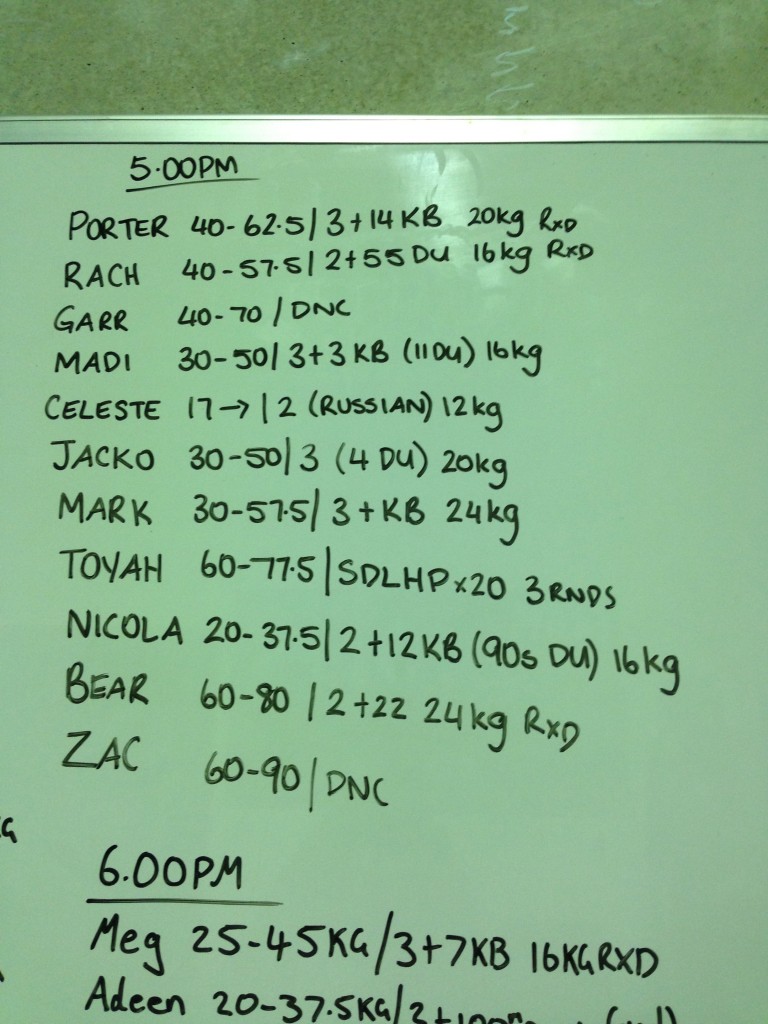 5.00PM
PORTER 40-62.5/3+14KB 20kg RxD
RACH 40-57.5/2+55 DU 16kg RxD
GARR 40-70/DNC
MADI 30-50/3+3KB (11DU) 16kg
CELESTE 17→/2 (RUSSIAN) 12kg
JACKO 30-50/3 (4 DU) 20kg
MARK 30-57.5/3+KB 24kg
TOYAH 60-77.5/SDLHP x20 3RNDS
NICOLA 20-37.5/2+12KB (90s DU) 16kg
BEAR 60-80/2+22 24kg RxD
ZAC 60-90/DNC
6.00PM
Meg 25-45KG/3+7KB 16KG RXD
Adeen 20-37.5KG/